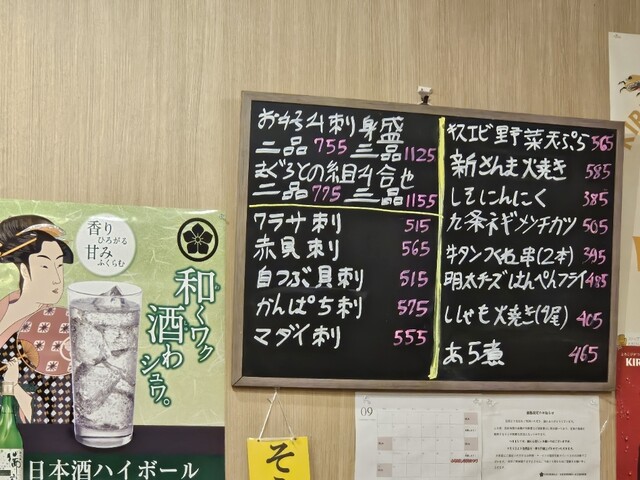 お好み刺身盛
二品 755 三品 1125
まぐろとの組み合せ
二品 775 三品 1155
ワラサ刺 515
赤貝刺 565
白つぶ貝刺 515
かんぱち刺 575
マダイ刺 555
キスエビ野菜天ぷら 565
新さんま焼き 585
しそにんにく 385
九条ネギメンチカツ 505
牛タンつくね串(2本) 395
明太チーズはんぺんフライ 485
ししゃも焼き(4尾) 405
あら煮 465
香り
ひろがる
甘み
ふくらむ
和くワク
酒わ
シュワ。
日本酒ハイボール
そ
09
KIR